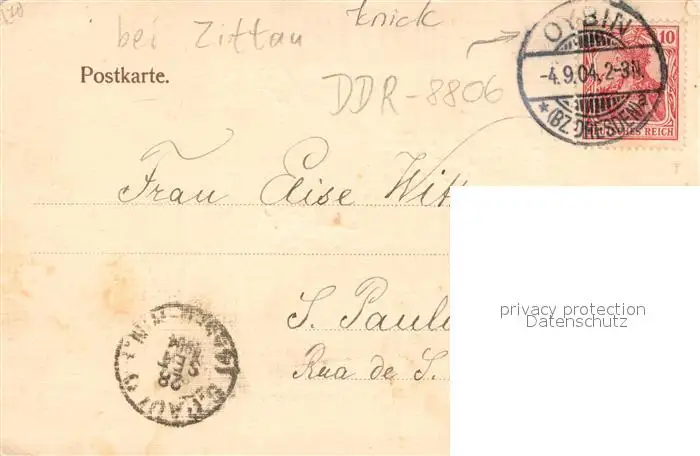 knick
bei Zittau
OYBIN
10
Postkarte.
-4.9.04. 2-3N.
DDR-8806
*(BZ. DRESDEN)*
REICH
Frau Elise Witt
S. Paul
Rua de S.
privacy protection
Datenschutz